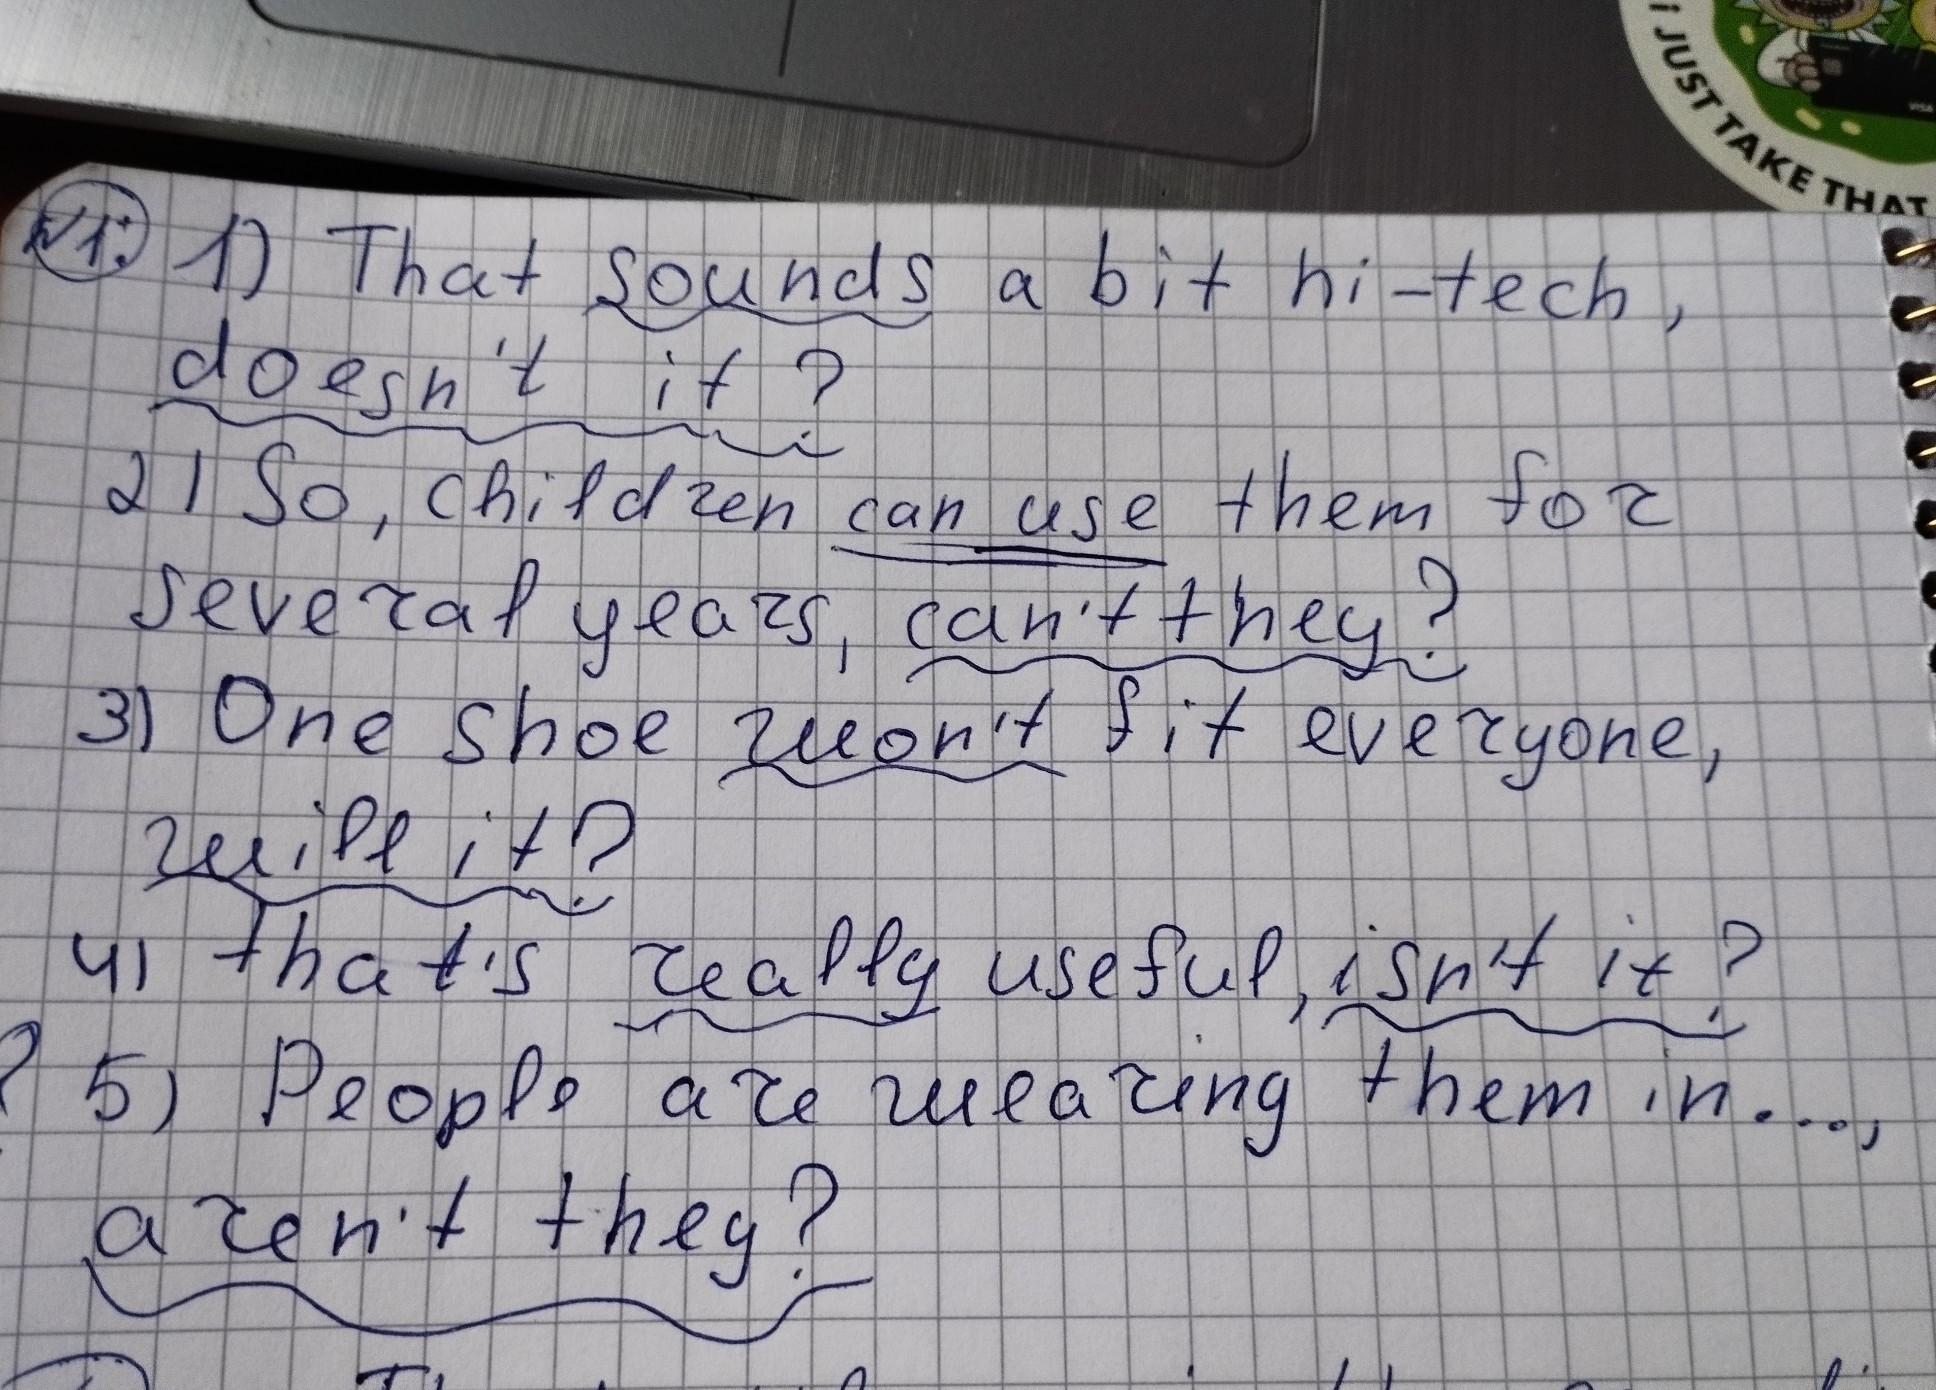 i JUST TAKE THAT
VISA
№1. 1) That sounds a bit hi-tech,
doesn't it?
2) So, children can use them for
several years, can't they?
3) One shoe won't fit everyone,
will it?
4) that's really useful, isn't it?
5) People are wearing them in....,
aren't they?